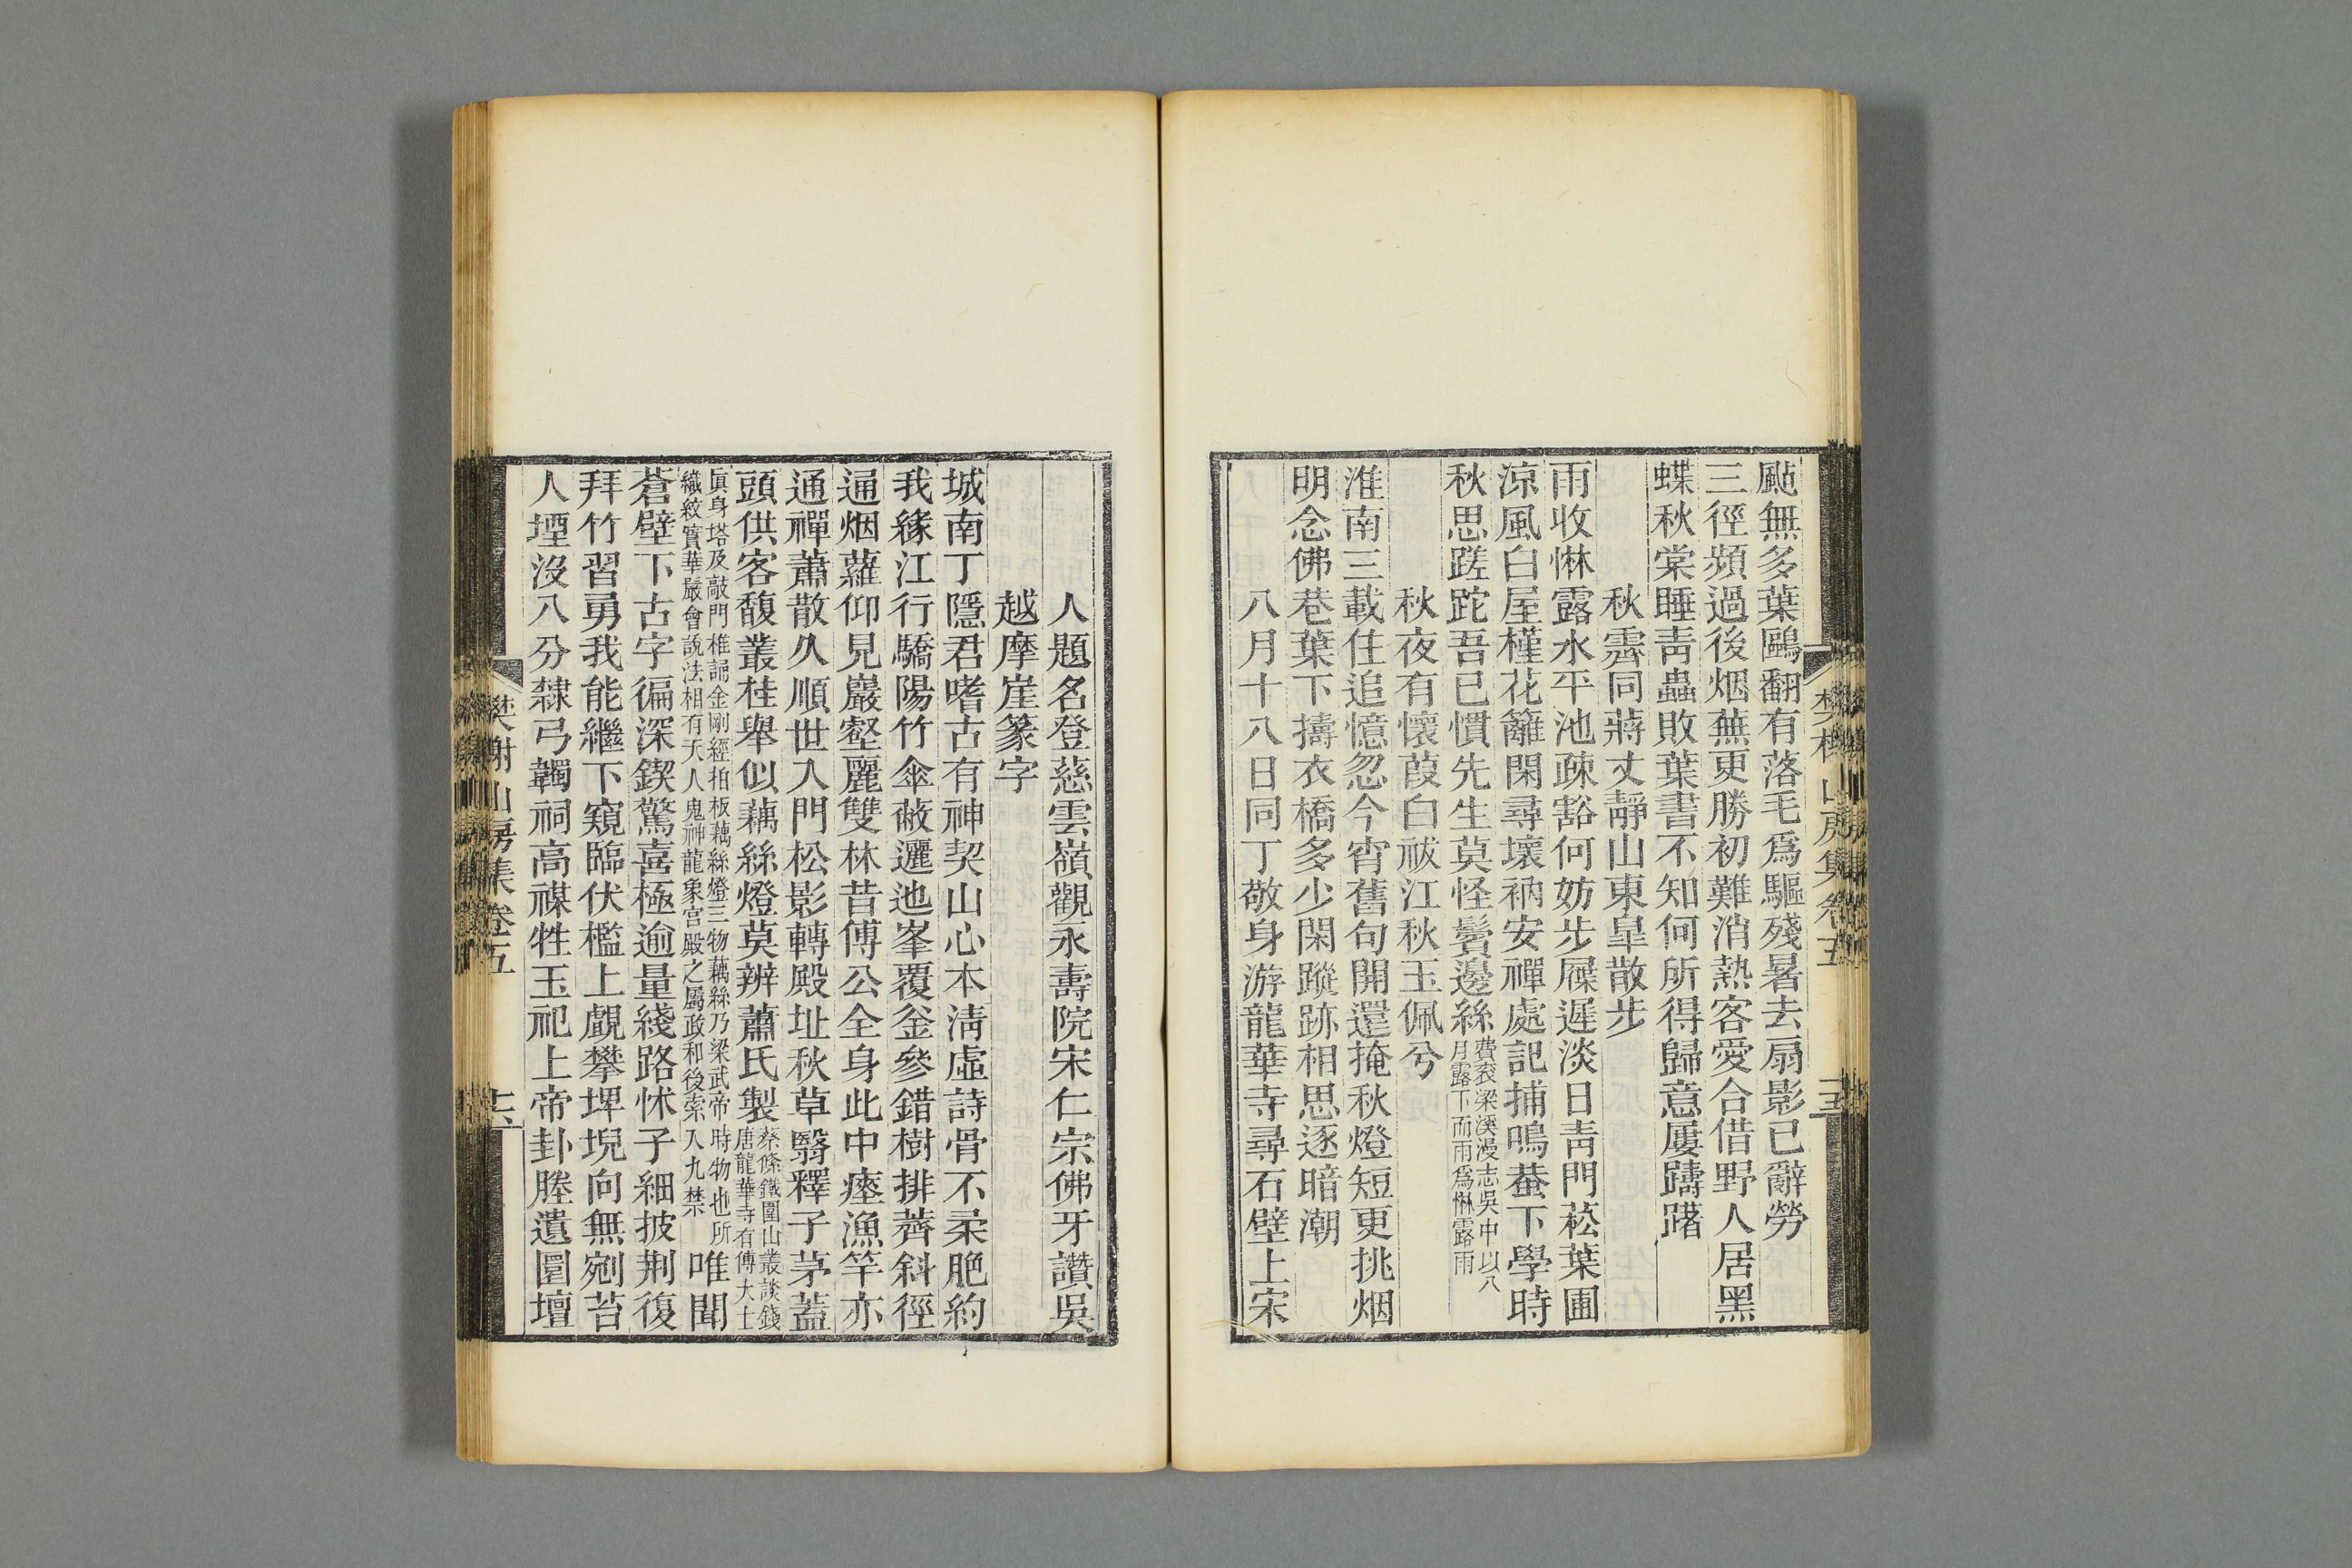 颭無多葉鷗翻有落毛爲驅殘暑去扇影已辭勞
三徑頻過後烟蕪更勝初難消熱客愛合借野人居黑
蝶秋棠睡青蟲敗葉書不知何所得歸意屢躊躇
秋霽同蔣丈靜山東皐散步
雨收惏露水平池疎豁何妨步屧遲淡日青門菘葉圃
涼風白屋槿花籬閑尋壞衲安禪處記捕鳴蛬下學時
秋思蹉跎吾已慣先生莫怪鬢邊絲費袞梁溪漫志吳中以八
月露下而雨爲惏露雨
秋夜有懷葭白祓江秋玉佩兮
淮南三載住追憶忽今宵舊句開還掩秋燈短更挑烟
明念佛巷葉下擣衣橋多少閑蹤跡相思逐暗潮
八月十八日同丁敬身游龍華寺尋石壁上宋
人題名登慈雲嶺觀永壽院宋仁宗佛牙讚吳
越摩崖篆字
城南丁隱君嗜古有神契山心本淸虛詩骨不柔脆約
我緣江行驕陽竹傘蔽邐迆峯覆釜參錯樹排薺斜徑
逼烟蘿仰見巖壑麗雙林昔傅公全身此中瘞漁竿亦
通禪蕭散久順世入門松影轉殿址秋草翳釋子茅蓋
頭供客馥叢桂舉似藕絲燈莫辨蕭氏製蔡絛鐵圍山叢談錢
唐龍華寺有傅大士
眞身塔及敲門椎誦金剛經拍板藕絲燈三物藕絲乃梁武帝時物也所
織紋實華嚴會說法相有天人鬼神龍象宮殿之屬政和後索入九禁唯聞
蒼壁下古字徧深鍥驚喜極逾量綫路怵子細披荆復
拜竹習勇我能繼下窺臨伏檻上覷攀埤堄向無剜苔
人堙沒八分隸弓韣祠高禖牲玉祀上帝卦塍遺圜壇
樊榭山房集卷五
十五
樊榭山房集卷五
十六